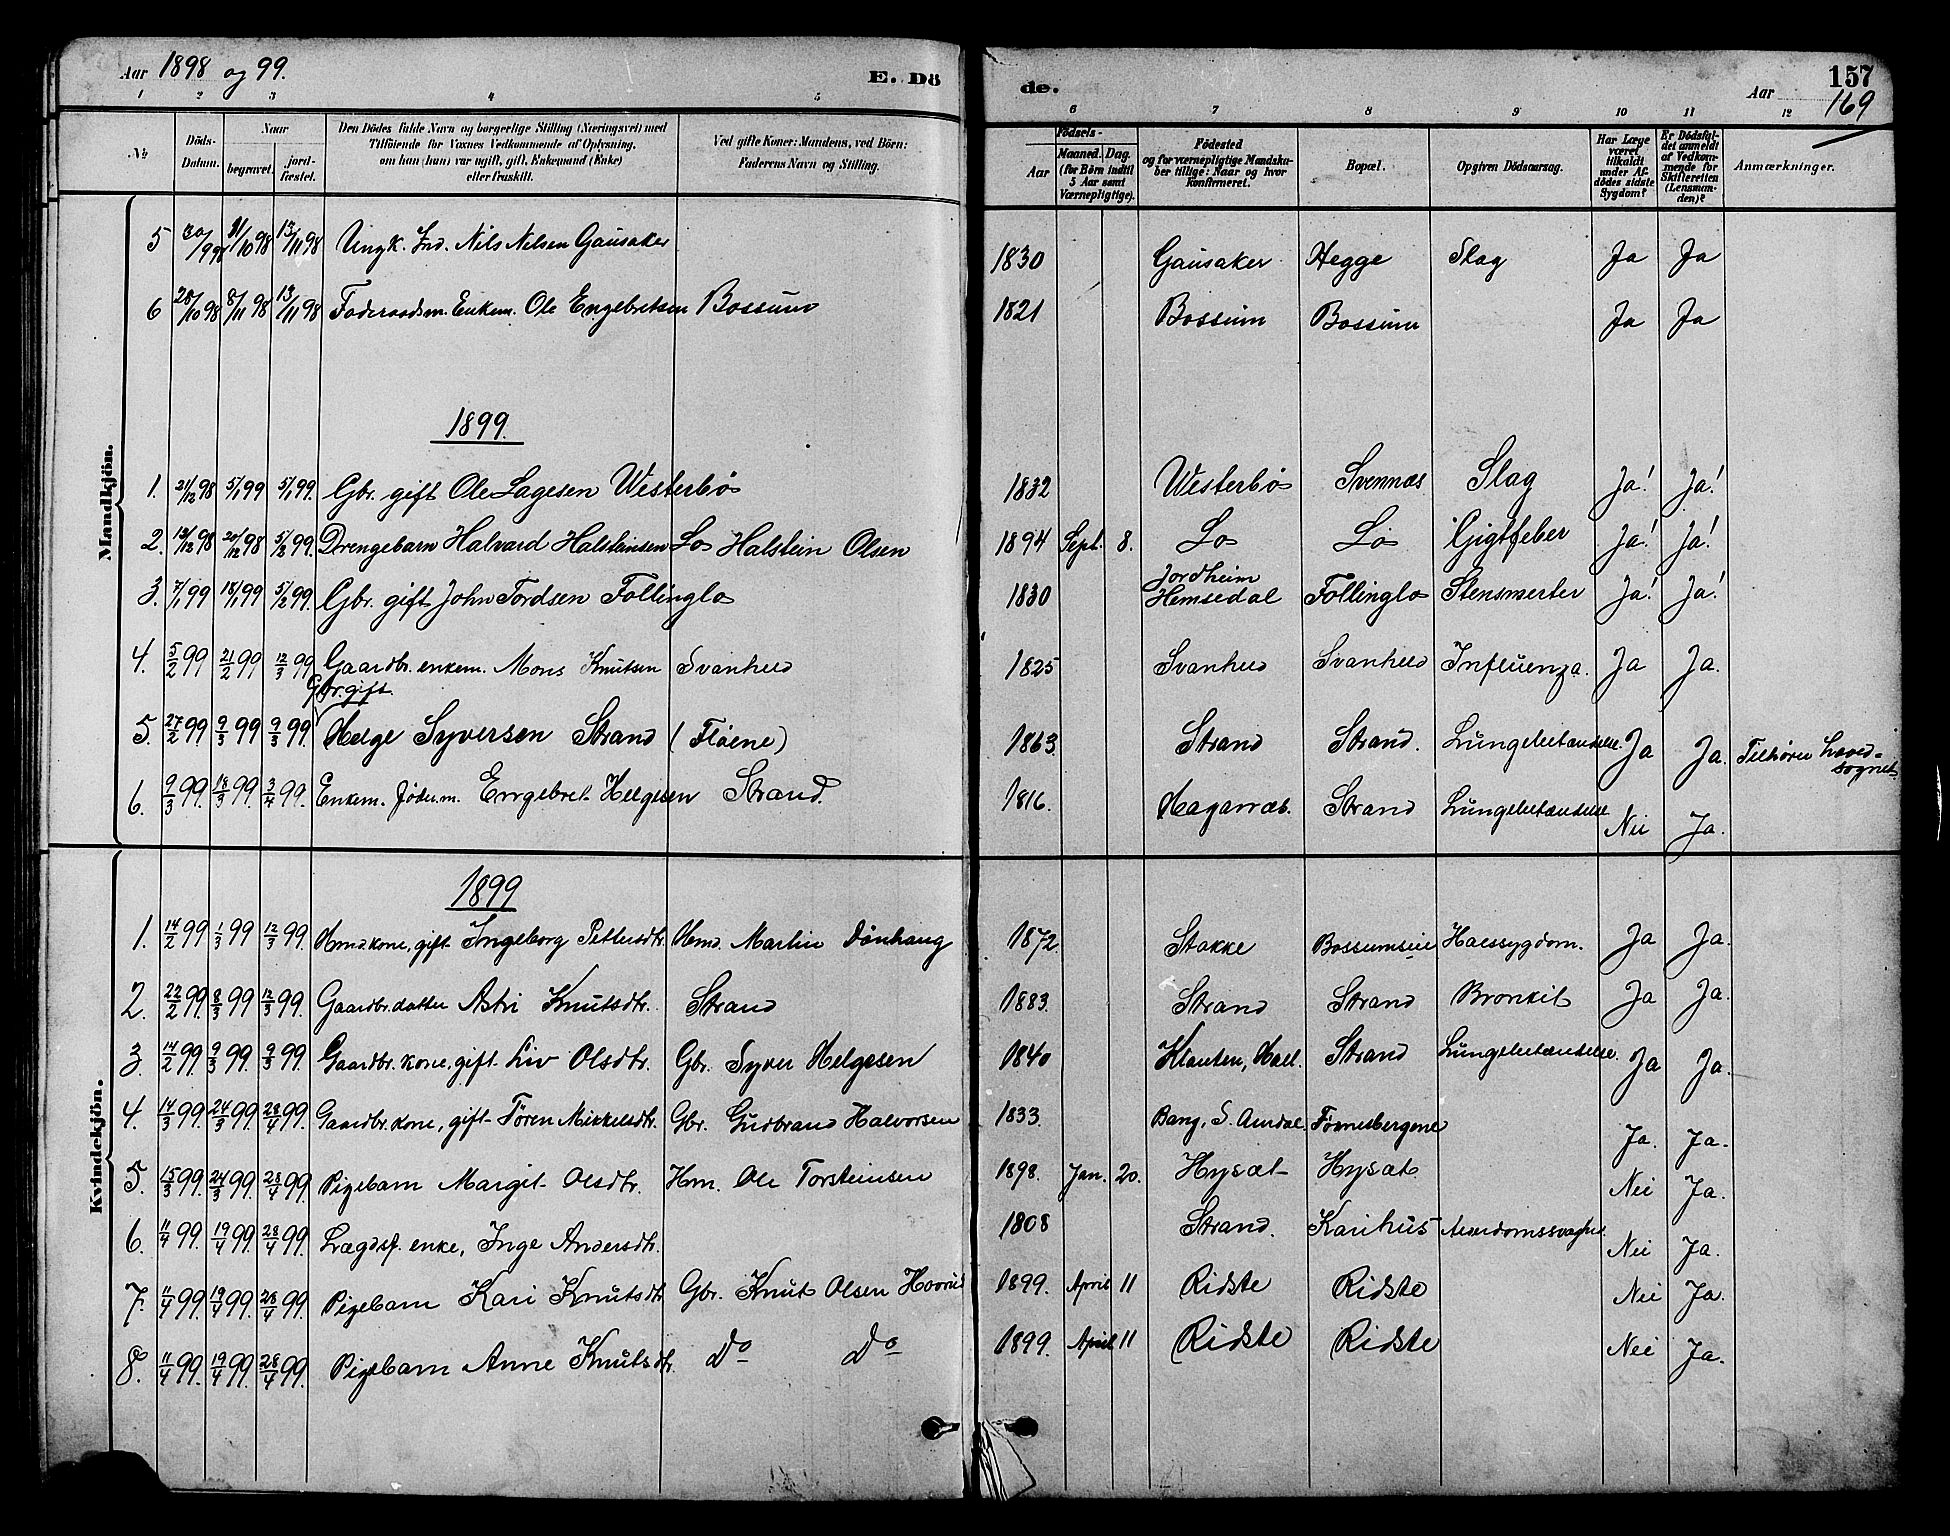 Aar 1898 og 99. E. Dö de. Aar 157
169
1 2 3 4 5 6 7 8 9 10 11 12
No
Döds-Datum.
Naar
begravet. jord-fæstet.
Den Dödes fulde Navn og borgerlige Stilling (Næringsvei) med
Tilföiende for Voxnes Vedkommende af Oplysning,
om han (hun) var ugift, gift, Enkemand (Enke)
eller fraskilt.
Ved gifte Koner: Mandens, ved Börn:
Faderens Navn og Stilling.
Födsels-
Aar Maaned. Dag.
(for Börn indtil
5 Aar samt
Værnepligtige).
Födested
og for værnepligtige Mandska-
ber tillige: Naar og hvor
konfirmeret.
Bopæl.
Opgiven Dödsaarsag.
Har Læge
været
tilkaldt
under Af-
dödes sidste
Sygdom?
Er Dödsfal-
det anmeldt
af Vedkom-
mende for
Skifteretten
(Lensman-
den)?
Anmærkninger.
Mandkjön.
5 30/9 98 11/10 98 13/11 98 Ungk. Ind. Nils Nilsen Gausaker 1830 Gausaker Hegge Slag Ja Ja
6 28/10 98 8/11 98 13/11 98 Föderaadsm. Enkem. Ole Engebretsen Bossum 1821 Bossum Bossum Ja Ja
1899.
1. 21/12 98 5/1 99 5/1 99. Gbr. gift Ole Lagesen Westerbø 1832 Westerbø Svennæs Slag Ja! Ja!
2. 13/12 98 20/12 98 5/2 99. Drengebarn Halvard Halsteinsen Lo Halstein Olsen 1894 Sept. 8. Lo Lo Gigtfeber Ja! Ja!
3. 7/1 99 18/1 99 5/2 99. Gbr. gift John Tordsen Follinglo 1830 Jordheim Hemsedal Follinglo Stensmerter Ja! Ja!
4. 5/2 99 21/2 99 12/3 99 Gaardbr. enkem. Mons Knutsen Svanheld 1825 Svanheld Svanheld Influenza. Ja Ja.
Gbr. gift
5. 27/2 99. 9/3 99 9/3 99. Helge Syversen Strand (Fløene) 1863. Strand Strand. Lungebetændelse. Ja Ja. Tilhører hoved-
sognet.
6. 9/3 99. 18/3 99. 3/4 99. Enkem. Föderm. Engebret Helgesen Strand. 1816. Hagaræt. Strand Lungebetændelse Nei Ja.
Kvindekjön.
1899
1. 14/2 99 1/3 99 12/3 99. Hmdskone, gift Ingeborg Pettersdtr. Hmd. Martin Dönhaug 1872. Stakke Bossumseie Halssygdom. Ja Ja.
2. 22/2 99. 8/3 99 12/3 99. Gaardbr. datter Astri Knutsdtr. Strand 1883. Strand Strand Bronkit Ja Ja.
3. 14/2 99 9/3 99. 9/3 99. Gaardbr. kone, gift Liv Olsdtr. Gbr. Syver Helgesen 1840 Klanten, Hall. Strand Lungebetændelse. Ja Ja.
4. 14/3 99. 24/3 99. 28/4 99. Gaardbr. kone, gift Tören Mikkelsdtr. Gbr. Gudbrand Halvorsen 1833. Bang, S. Aurdal. Fønnesbergene Ja. Ja.
5. 15/3 99. 24/3 99. 28/4 99. Pigebarn Margit Olsdtr. Hm. Ole Torsteinsen 1898. Jan. 20. Hysæt Hysæt Nei Ja.
6. 11/4 99. 19/4 99. 28/4 99. Lægdsf. enke, Inge Andersdtr. 1808 Strand. Karihus Alderdomssvaghed. Nei Ja.
7. 11/4 99. 19/4 99. 28/4 99. Pigebarn Kari Knutsdtr. Gbr. Knut Olsen Hovrud 1899. April 11 Ridste Ridste Nei Ja.
8. 11/4 99. 19/4 99. 28/4 99. Pigebarn Anne Knutsdtr. Do Do 1899. April 11 Ridste Ridste Nei Ja.